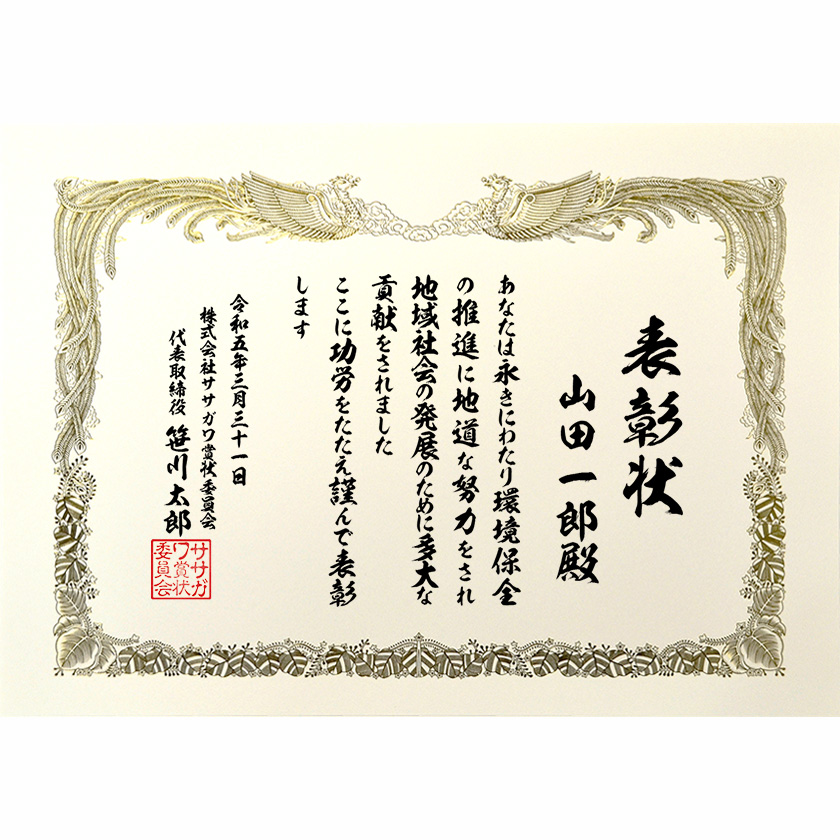 表彰状
山田一郎殿
あなたは永きにわたり環境保全
の推進に地道な努力をされ
地域社会の発展のために多大な
貢献をされました
ここに功労をたたえ謹んで表彰
します
令和五年三月三十一日
株式会社ササガワ賞状委員会
代表取締役 笹川太郎
ササガ
ワ賞状
委員会